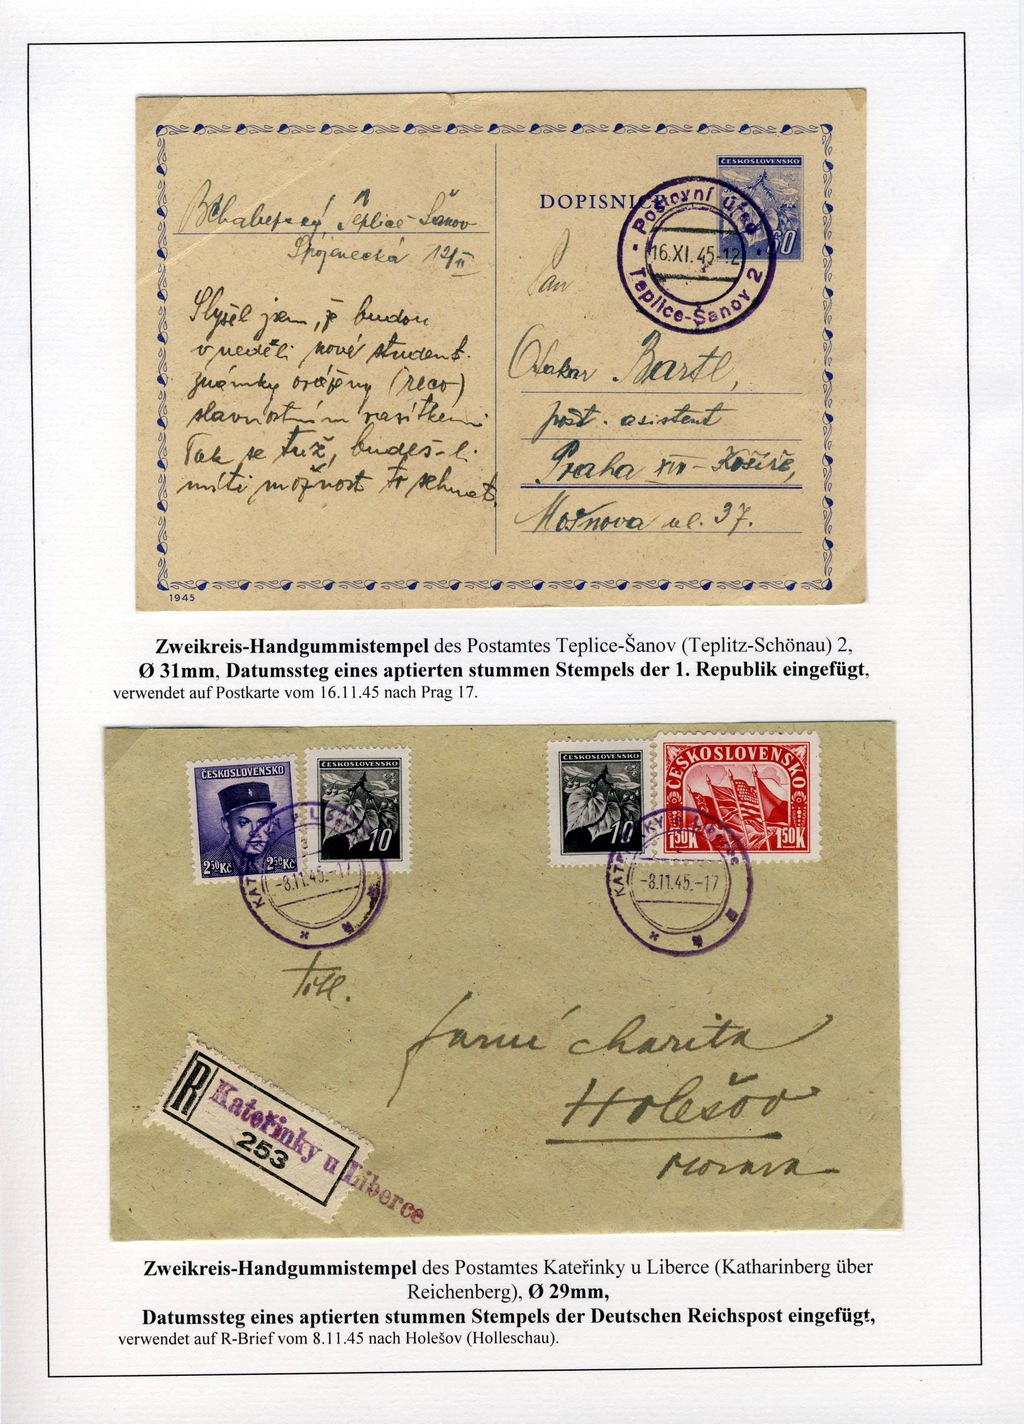 ČESKOSLOVENSKO
DOPISNICE
60
Poštovní úřad
16.XI.45-12
Teplice-Šanov 2
Teplice-Šanov
Spojenecká 12/II
Pan
Otakar Bartl,
pošt. asistent
Praha XIV - Košíře,
Mošnova ul. 37.
Slyšel jsem, že budou
v neděli nové student.
známky orážény (reco)
slavnostním razítkem.
Tak se tuž, budeš-li
míti možnost to sehnat.
1945
Zweikreis-Handgummistempel des Postamtes Teplice-Šanov (Teplitz-Schönau) 2,
Ø 31mm, Datumssteg eines aptierten stummen Stempels der 1. Republik eingefügt,
verwendet auf Postkarte vom 16.11.45 nach Prag 17.
ČESKOSLOVENSKO
2.50 Kč 2.50 Kč
ČESKOSLOVENSKO
10
ČESKOSLOVENSKO
10
ČESKOSLOVENSKO
1.50K 1.50K
-8.11.45.-17
-8.11.45.-17
Titl.
Farní charita
Holešov
Morava
R
Kateřinky u Liberce
253
Zweikreis-Handgummistempel des Postamtes Kateřinky u Liberce (Katharinberg über
Reichenberg), Ø 29mm,
Datumssteg eines aptierten stummen Stempels der Deutschen Reichspost eingefügt,
verwendet auf R-Brief vom 8.11.45 nach Holešov (Holleschau).